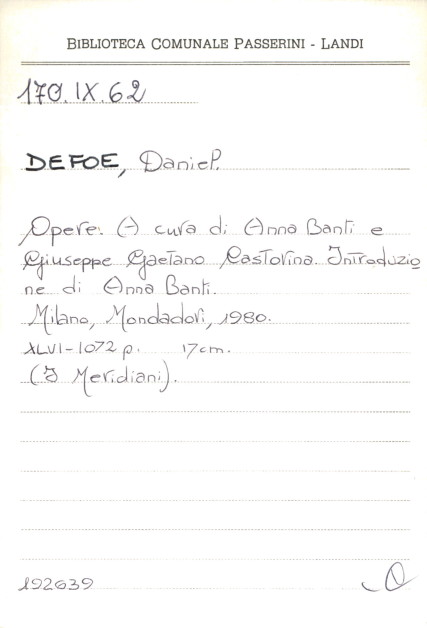 BIBLIOTECA COMUNALE PASSERINI - LANDI
170.IX.62
DEFOE, Daniel.
Opere. A cura di Anna Banti e
Giuseppe Gaetano Castorina. Introduzio
ne di Anna Banti.
Milano, Mondadori, 1980.
XLVI-1072 p. 17cm.
(I Meridiani).
192639